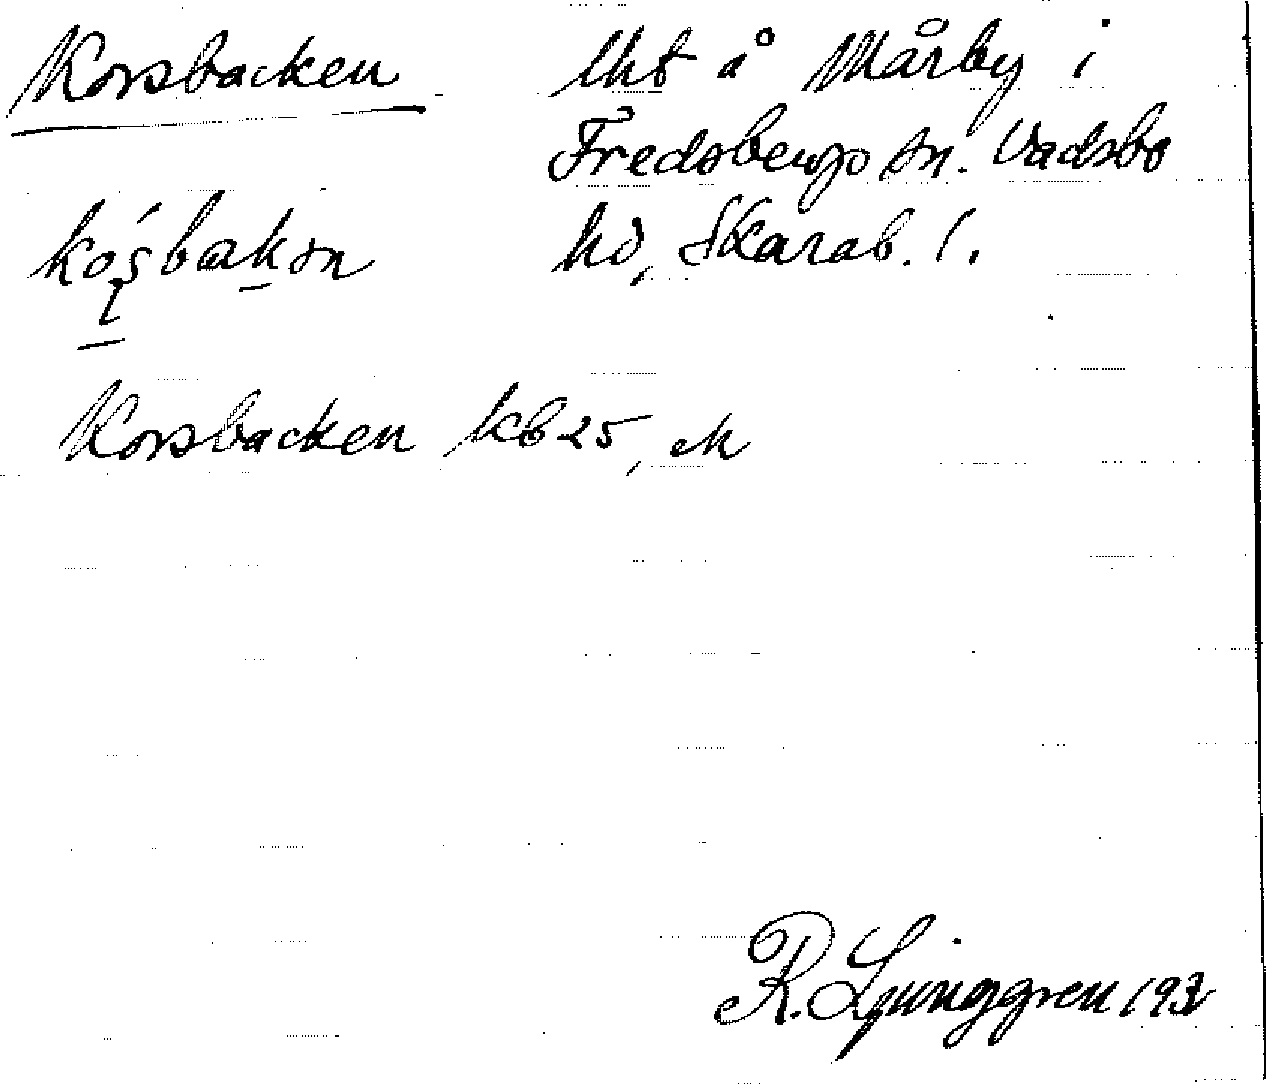 Korsbacken lht å Mårby i
Fredsbergs sn. Vadsbo
hd, Skarab. l.
Korsbacken kb 25, m
R. Ljunggren 193